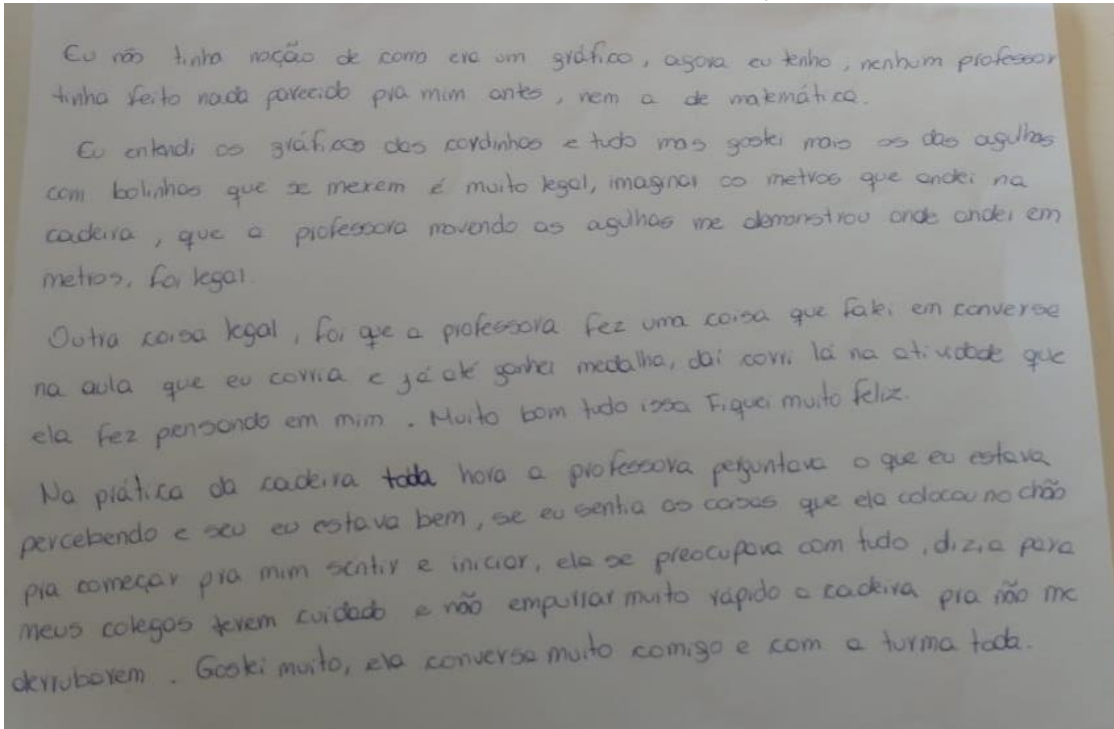 Eu não tinha noção de como era um gráfico, agora eu tenho, nenhum professor
tinha feito nada parecido pra mim antes, nem a de matemática.
Eu entendi os gráficos das cordinhas e tudo mas gostei mais os das agulhas
com bolinhas que se mexem é muito legal, imaginar os metros que andei na
cadeira, que a professora movendo as agulhas me demonstrou onde andei em
metros, foi legal.
Outra coisa legal, foi que a professora fez uma coisa que falei em converse
na aula que eu corria e já até ganhei medalha, daí corri lá na atividade que
ela fez pensando em mim. Muito bom tudo isso Fiquei muito feliz.
Na prática da cadeira toda hora a professora perguntava o que eu estava
percebendo e seu eu estava bem, se eu sentia as coisas que ela colocou no chão
pra começar pra mim sentir e iniciar, ela se preocupava com tudo, dizia para
meus colegas terem cuidado e não empurrar muito rápido a cadeira pra não me
derrubarem. Gostei muito, ela conversa muito comigo e com a turma toda.